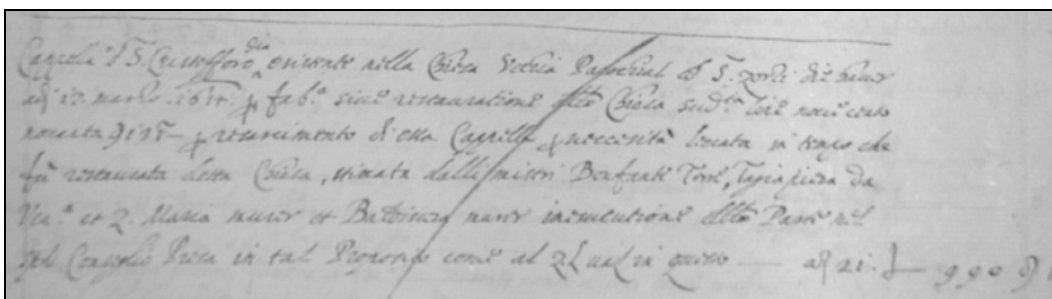 Cappela d S. Cristofforo dia existente nella Chiesa Vechia Parochial di S. Zorzi die haver
adi 17. marzo. 1611. p fab.a sive restauratione della Chiesa sud.ta lire nove cento
novanta p resarcimento di essa Cappella p neccesità levata in tempo che
fu restaurata detta Chiesa, stimata dalli mistri Bonfante Torre, Tagiapiera da
Ven.a et Z. Maria murer et Battista murer in essecutione della Parte nel
Consiglio Presa in tal Proposito come al in questo — a 21. L — 990